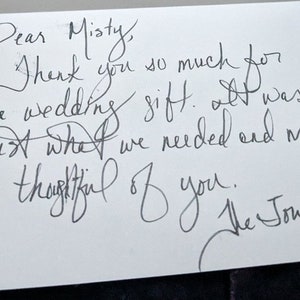 Dear Misty,
Thank you so much for
wedding gift. It was
just what we needed and
thoughtful of you.
The